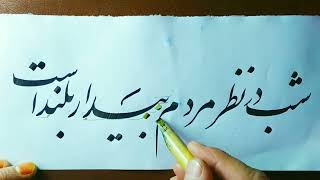 شب در نظر مردم بیدار بلند است